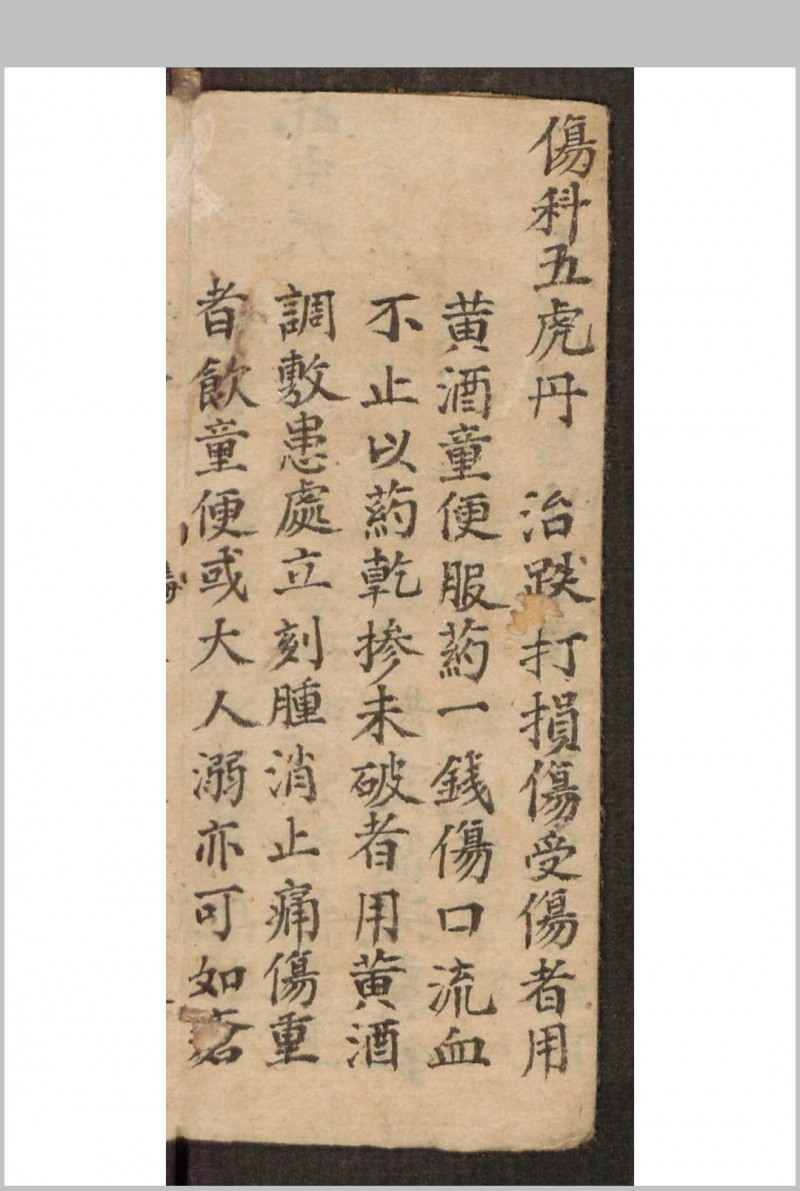 傷科五虎丹 治跌打損傷受傷者用
黄酒童便服葯一錢傷口流血
不止以葯乾掺未破者用黄酒
調敷患處立刻腫消止痛傷重
者飲童便或大人溺亦可如